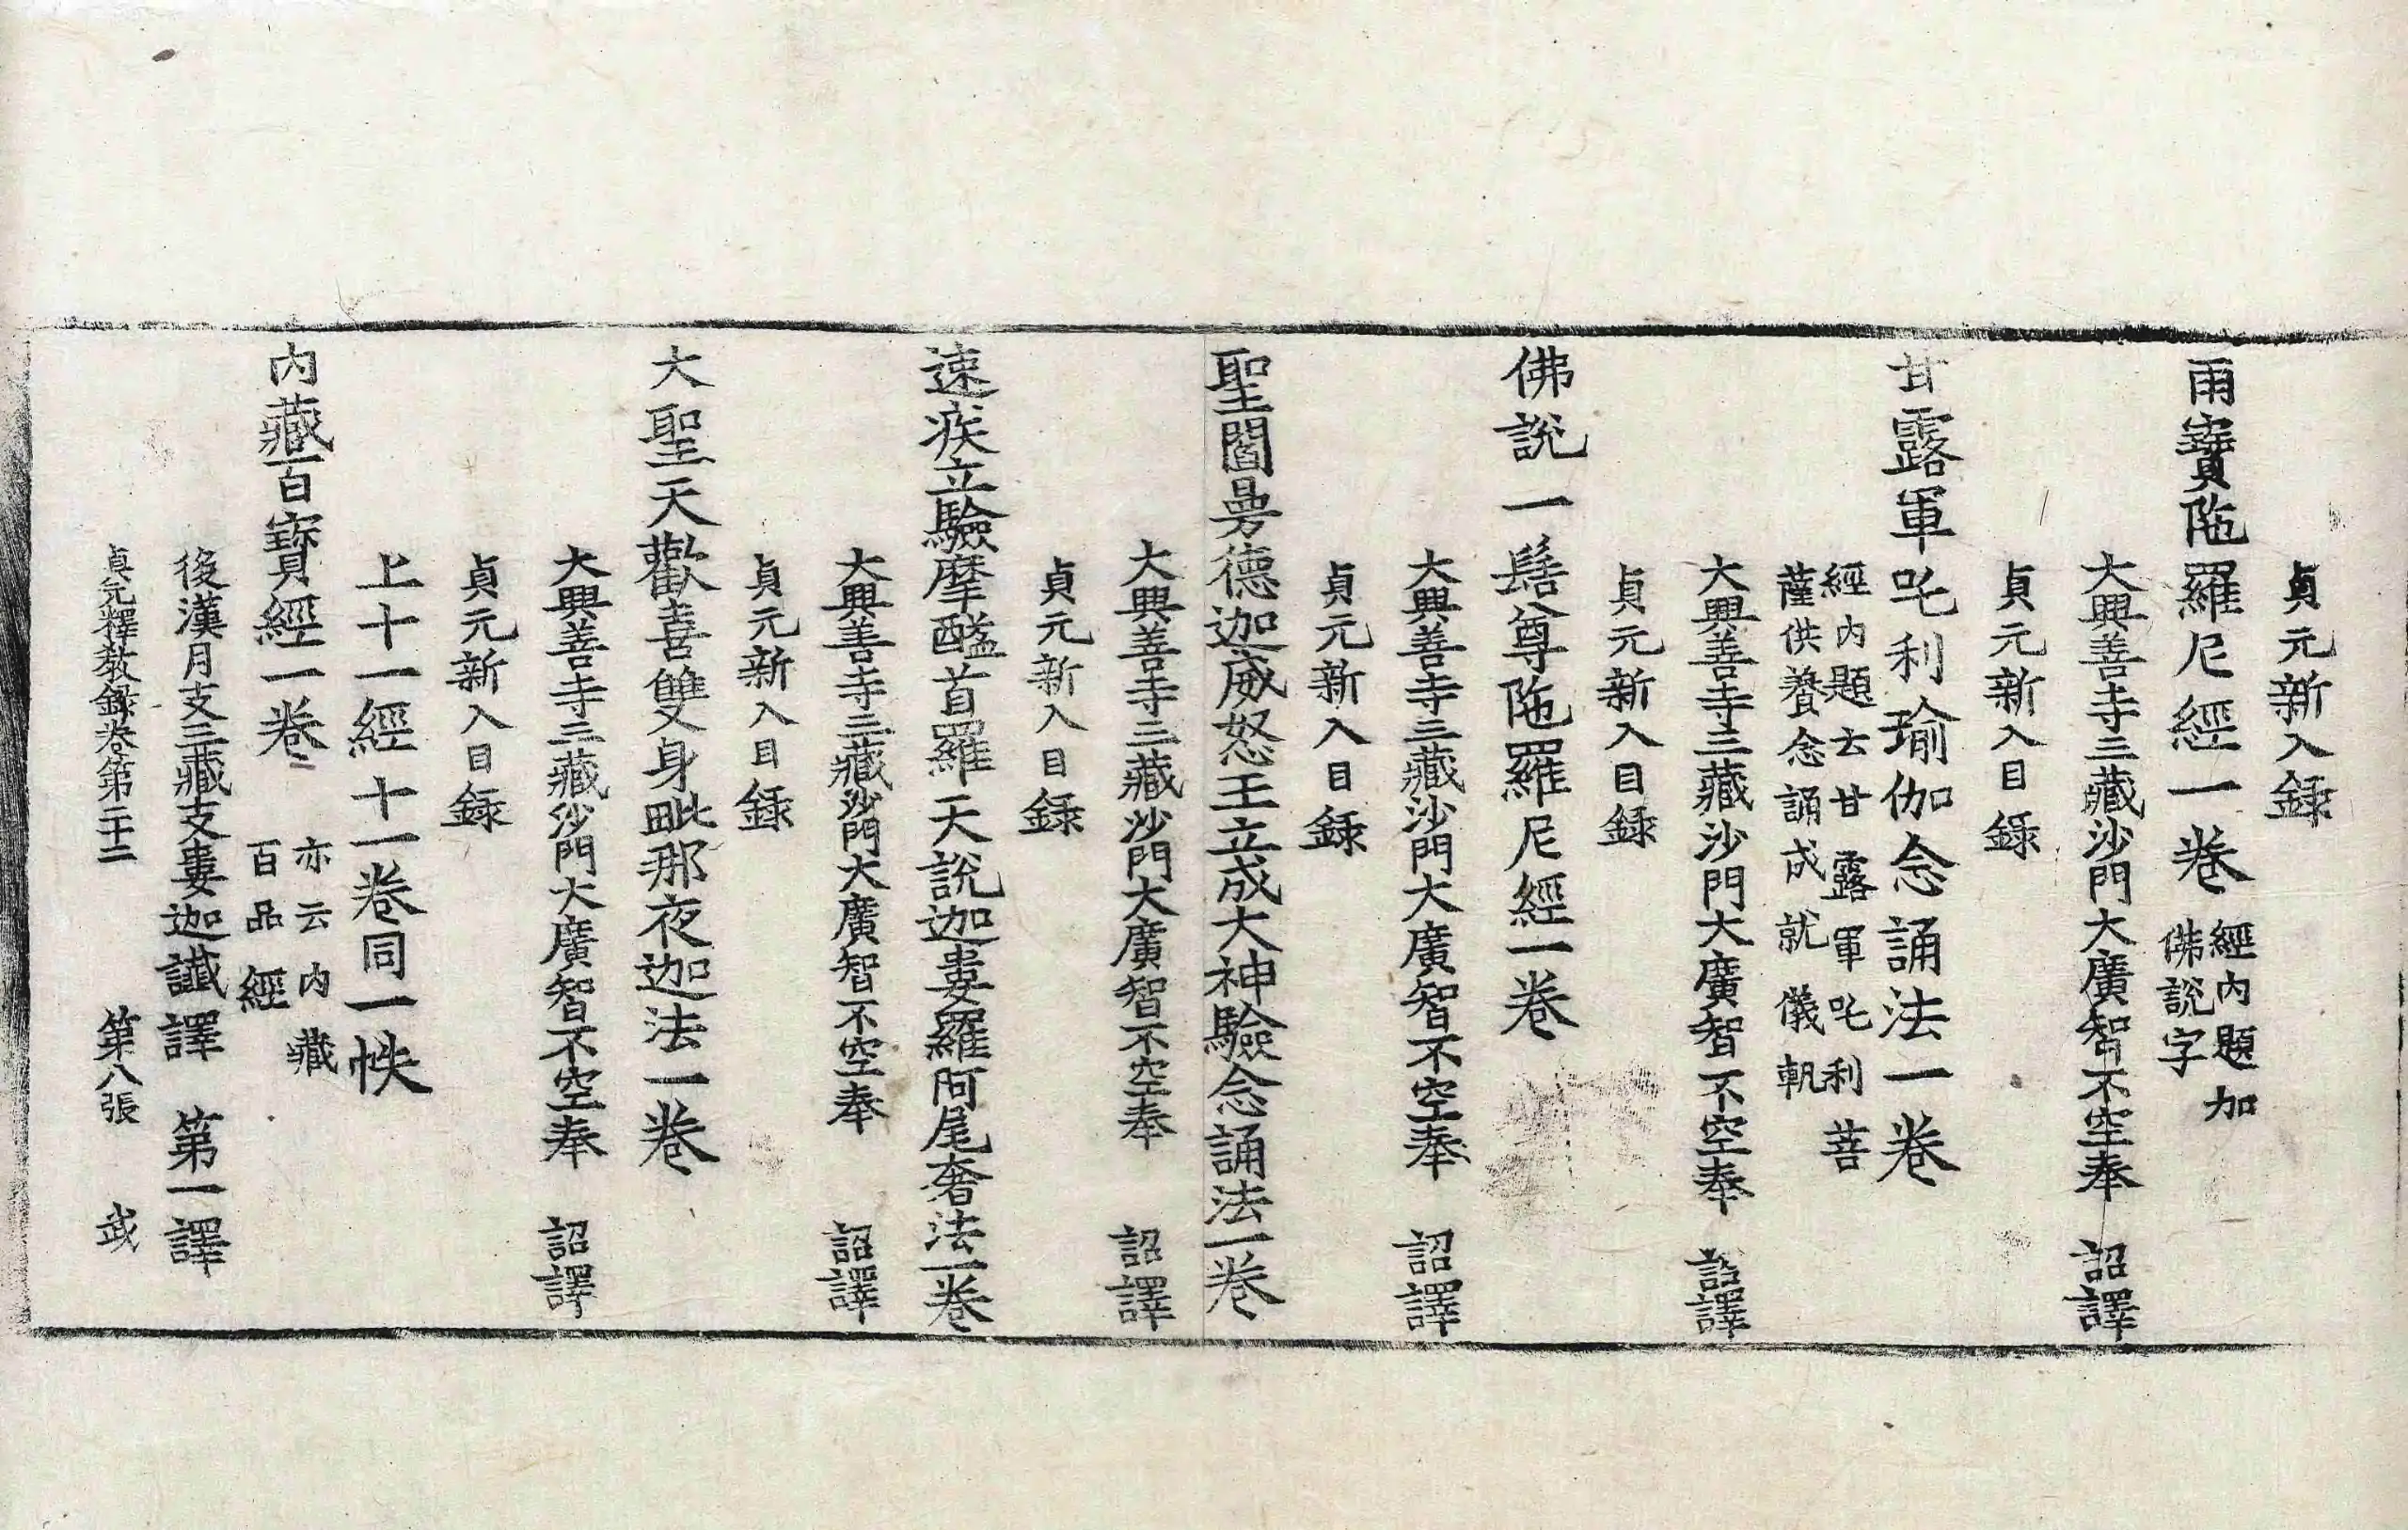 貞元新入録
雨寶陁羅尼經一卷 經内題加佛說字
大興善寺三藏沙門大廣智不空奉 詔譯
貞元新入目録
甘露軍吒利瑜伽念誦法一卷
經内題云甘露軍吒利菩
薩供養念誦成就儀軌
大興善寺三藏沙門大廣智不空奉 詔譯
貞元新入目録
佛說一髻尊陁羅尼經一卷
大興善寺三藏沙門大廣智不空奉 詔譯
貞元新入目録
聖閻曼德迦威怒王立成大神驗念誦法一卷
大興善寺三藏沙門大廣智不空奉 詔譯
貞元新入目録
速疾立驗摩醯首羅天說迦婁羅阿尾奢法一卷
大興善寺三藏沙門大廣智不空奉 詔譯
貞元新入目録
大聖天歡喜雙身毗那夜迦法一卷
大興善寺三藏沙門大廣智不空奉 詔譯
貞元新入目録
上十一經十一卷同一帙
内藏百寶經一卷 亦云内藏百品經
後漢月支三藏支婁迦讖譯 第一譯
貞元釋教録卷第二十二 第八張 武